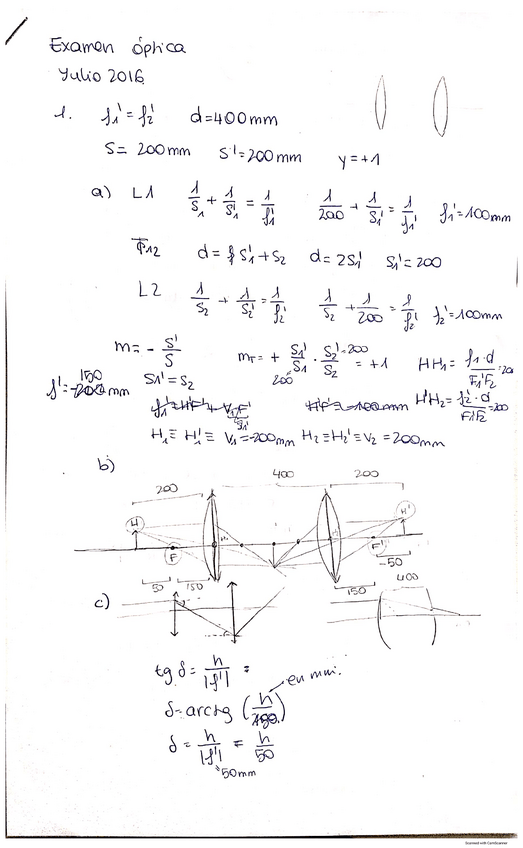 Examen óptica
Yulio 2016
1. f₁' = f₂' d = 400mm
S = 200mm S' = 200mm y = +1
a) L1 1/S₁ + 1/S₁' = 1/f₁' 1/200 + 1/S₁' = 1/f₁' f₁' = 100mm
T₁₂ d = S₁' + S₂ d = 2S₁' S₁' = 200
L2 1/S₂ + 1/S₂' = 1/f₂' 1/S₂ + 1/200 = 1/f₂' f₂' = 100mm
m = - S'/S m_T = + S₁'/S₁ · S₂'/S₂ = +1 HH₁ = f₁·d/F₁'F₂
200 200
S₁' = S₂ H'H₂ = f₂'·d/F₁'F₂
150
f' = mm
H₁ ≡ H₁' ≡ V₁ = -200mm H₂ ≡ H₂' ≡ V₂ = 200mm
b)
200 400 200
H H'
F F'
50 150 150 -50
c) 400
tg δ = h/|f'| =
en mm.
δ = arctg (h/)
δ = h/|f'| = h/50
50mm
Scanned with CamScanner